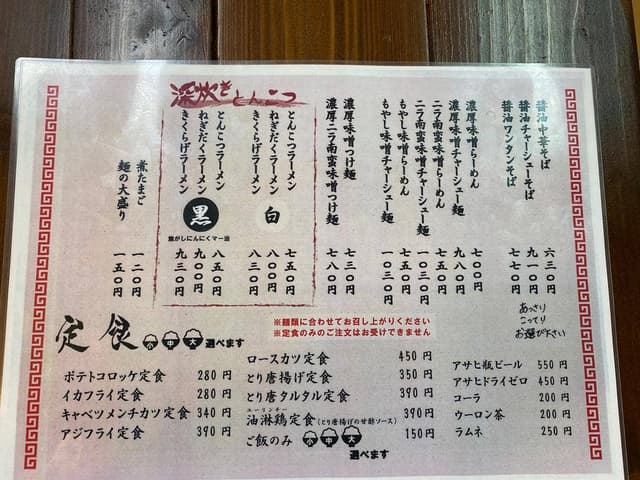 醤油中華そば 六三〇円
醤油チャーシューそば 九一〇円
醤油ワンタンそば 七七〇円
あっさり
こってり
お選び下さい
濃厚味噌らーめん 七〇〇円
濃厚味噌チャーシュー麺 九八〇円
ニラ南蛮味噌らーめん 七五〇円
ニラ南蛮味噌チャーシュー麺 一〇三〇円
もやし味噌らーめん 七五〇円
もやし味噌チャーシュー麺 一〇三〇円
濃厚味噌つけ麺 七三〇円
濃厚ニラ南蛮味噌つけ麺 七八〇円
深炊きとんこつ
とんこつラーメン 七五〇円
ねぎだくラーメン 八〇〇円
きくらげラーメン 八三〇円
白
とんこつラーメン 八五〇円
ねぎだくラーメン 九〇〇円
きくらげラーメン 九三〇円
黒
焦がしにんにくマー油
煮たまご 一二〇円
麺の大盛り 一五〇円
定食 小 中 大 選べます
※麺類に合わせてお召し上がりください
※定食のみのご注文はお受けできません
ポテトコロッケ定食 280円
イカフライ定食 280円
キャベツメンチカツ定食 340円
アジフライ定食 390円
ロースカツ定食 450円
とり唐揚げ定食 350円
とり唐タルタル定食 390円
ユーリンチー
油淋鶏定食(とり唐揚げの甘酢ソース) 390円
ご飯のみ 小 中 大 150円
選べます
アサヒ瓶ビール 550円
アサヒドライゼロ 450円
コーラ 200円
ウーロン茶 200円
ラムネ 250円